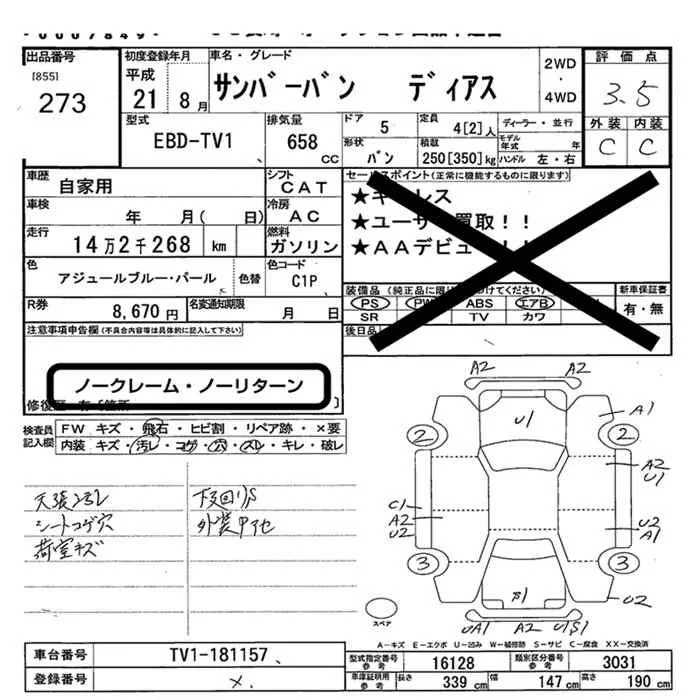 出品番号
[855]
273
初度登録年月
平成
21 8月
車名・グレード
サンバーバン ディアス
2WD
・
4WD
評価点
3.5
外装 内装
C C
型式
EBD-TV1
排気量
658 CC
ドア 5
形状 バン
定員 4[2]人
積載 250[350]kg
ディーラー・並行
モデル年式 年
ハンドル 左・右
車歴
自家用
シフト
CAT
車検
年 月( 日)
冷房
AC
走行
14万2千268 km
燃料
ガソリン
色
アジュールブルー・パール
色替
色コード
C1P
R券
8,670円
名変通知期限
月 日
セールスポイント(正常に機能するものに限ります)
★キーレス
★ユーザー買取!!
★AAデビュー!!
装備品
PS PW ABS エアB
SR TV カワ
新車保証書
有・無
後日品
注意事項申告欄(不具合内容等は具体的に記入して下さい)
ノークレーム・ノーリターン
検査員記入欄
FW キズ・飛石・ヒビ割・リペア跡・×要
内装 キズ・汚レ・コゲ・穴・スレ・キレ・破レ
天張ヨゴレ
シートコゲ穴
荷室キズ
下回リS
外装
A2 A2
U1
A1
2 2
A2
U1
C1
A2
U2
U2
A1
3 3
U2
UA1 A2 U1S1
スペア
A-キズ E-エクボ U-凹み W-補修跡 S-サビ C-腐食 XX-交換済
車台番号
TV1-181157
登録番号
×
型式指定番号 参考 16128
類別区分番号 参考 3031
車庫証明用 参考 長さ 339 cm 幅 147 cm 高さ 190 cm